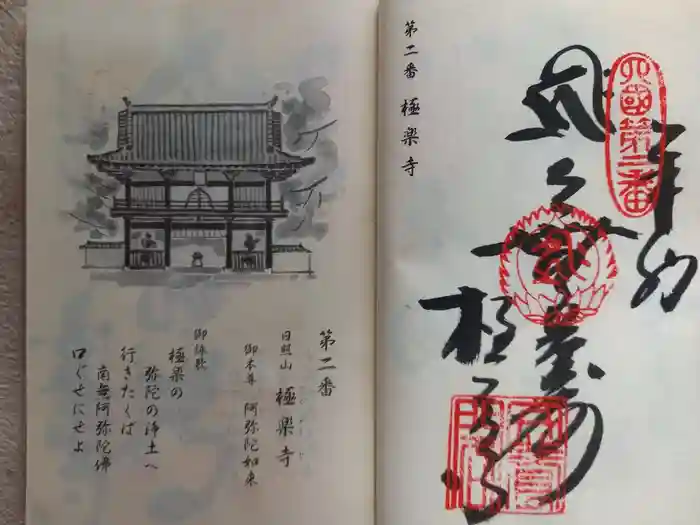 奉納
四國第二番
極楽寺
第二番 極楽寺
第二番
日照山 極楽寺
御本尊 阿弥陀如来
御詠歌
極楽の
弥陀の浄土へ
行きたくば
南無阿弥陀佛
口ぐせにせよ